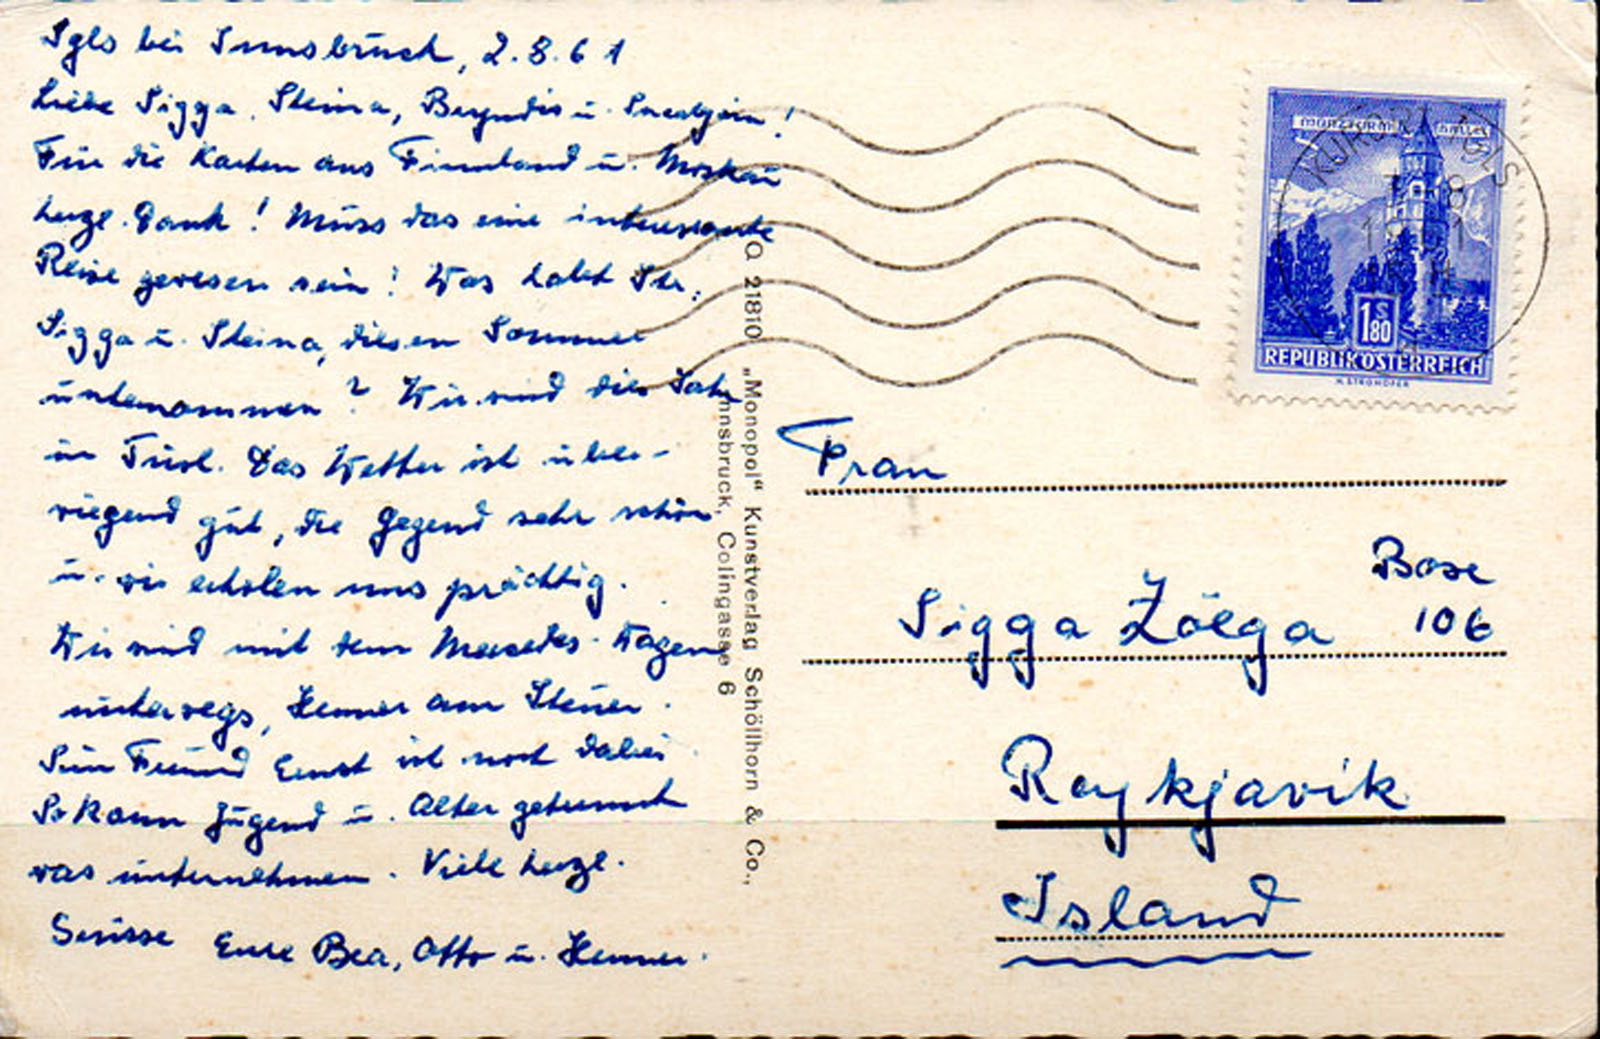 Igls bei Innsbruck, 2.8.61
Liebe Sigga, Steina, Bryndis u.
Für die Karten aus Finnland u. Moskau
herzl. Dank! Muss das eine interessante
Reise gewesen sein! Was habt Ihr,
Sigga u. Steina, diesen Sommer
unternommen? Wir sind dies Jahr
in Tirol. Das Wetter ist über-
wiegend gut, die Gegend sehr schön
u. wir erholen uns prächtig.
Wir sind mit dem Mercedes-Wagen
unterwegs, Henner am Steuer.
Sein Freund Ernst ist noch dabei.
So kann Jugend u. Alter getrennt
was unternehmen. Viele herzl.
Grüsse Eure Bea, Otto u. Henner.
Q 21810 „Monopol“ Kunstverlag Schöllhorn & Co.,
Innsbruck, Colingasse 6
MÜNZTURM HALL
KURORT IGLS
1S
1.80
REPUBLIK ÖSTERREICH
H. STROHOFER
Frau
Sigga Zöega Boxe
106
Reykjavik
Island